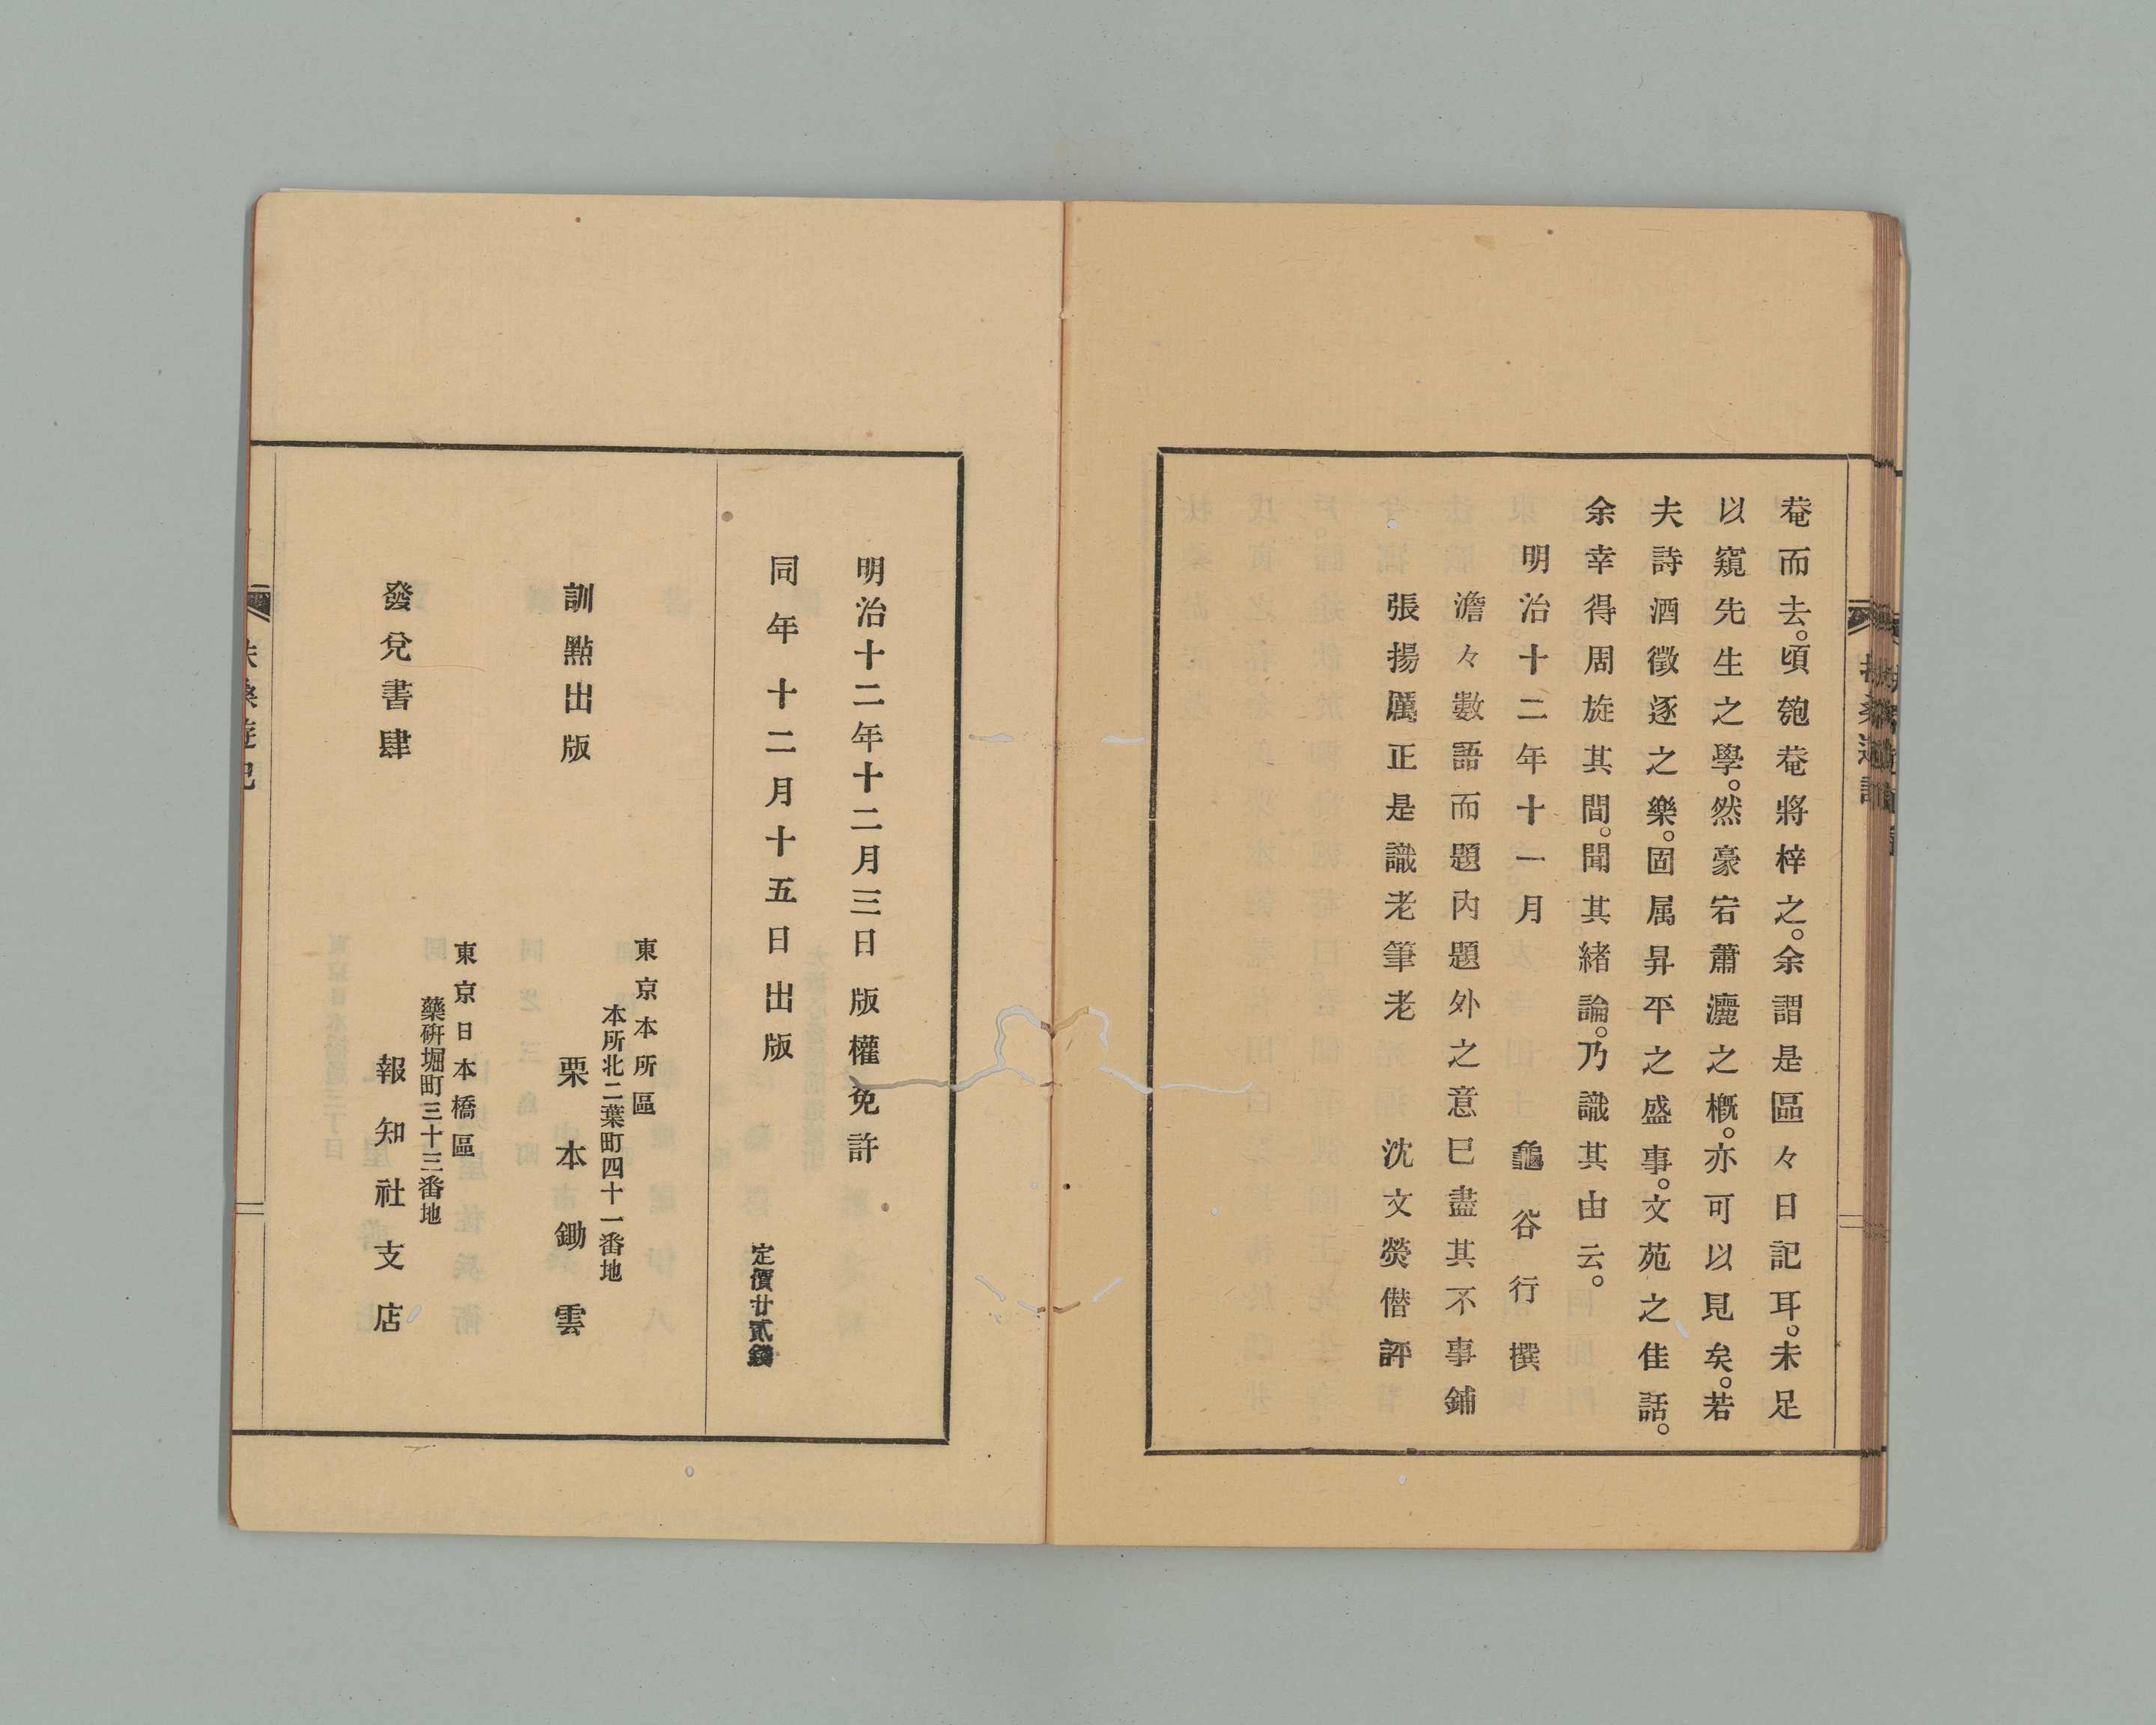 菴而去。頃匏菴將梓之。余謂是區々日記耳。未足
以窺先生之學。然豪宕蕭灑之概。亦可以見矣。若
夫詩酒徵逐之樂。固属昇平之盛事。文苑之佳話。
余幸得周旋其間。聞其緒論。乃識其由云。
明治十二年十一月　龜谷行撰
澹々數語而題内題外之意巳盡其不事鋪
張揚厲正是識老筆老　沈文熒僣評
明治十二年十二月三日版權免許
同年十二月十五日出版
定價廿貳錢
訓點出版
東京本所區
本所北二葉町四十一番地
栗本鋤雲
發兌書肆
東京日本橋區
藥硏堀町三十三番地
報知社支店
扶桑遊記